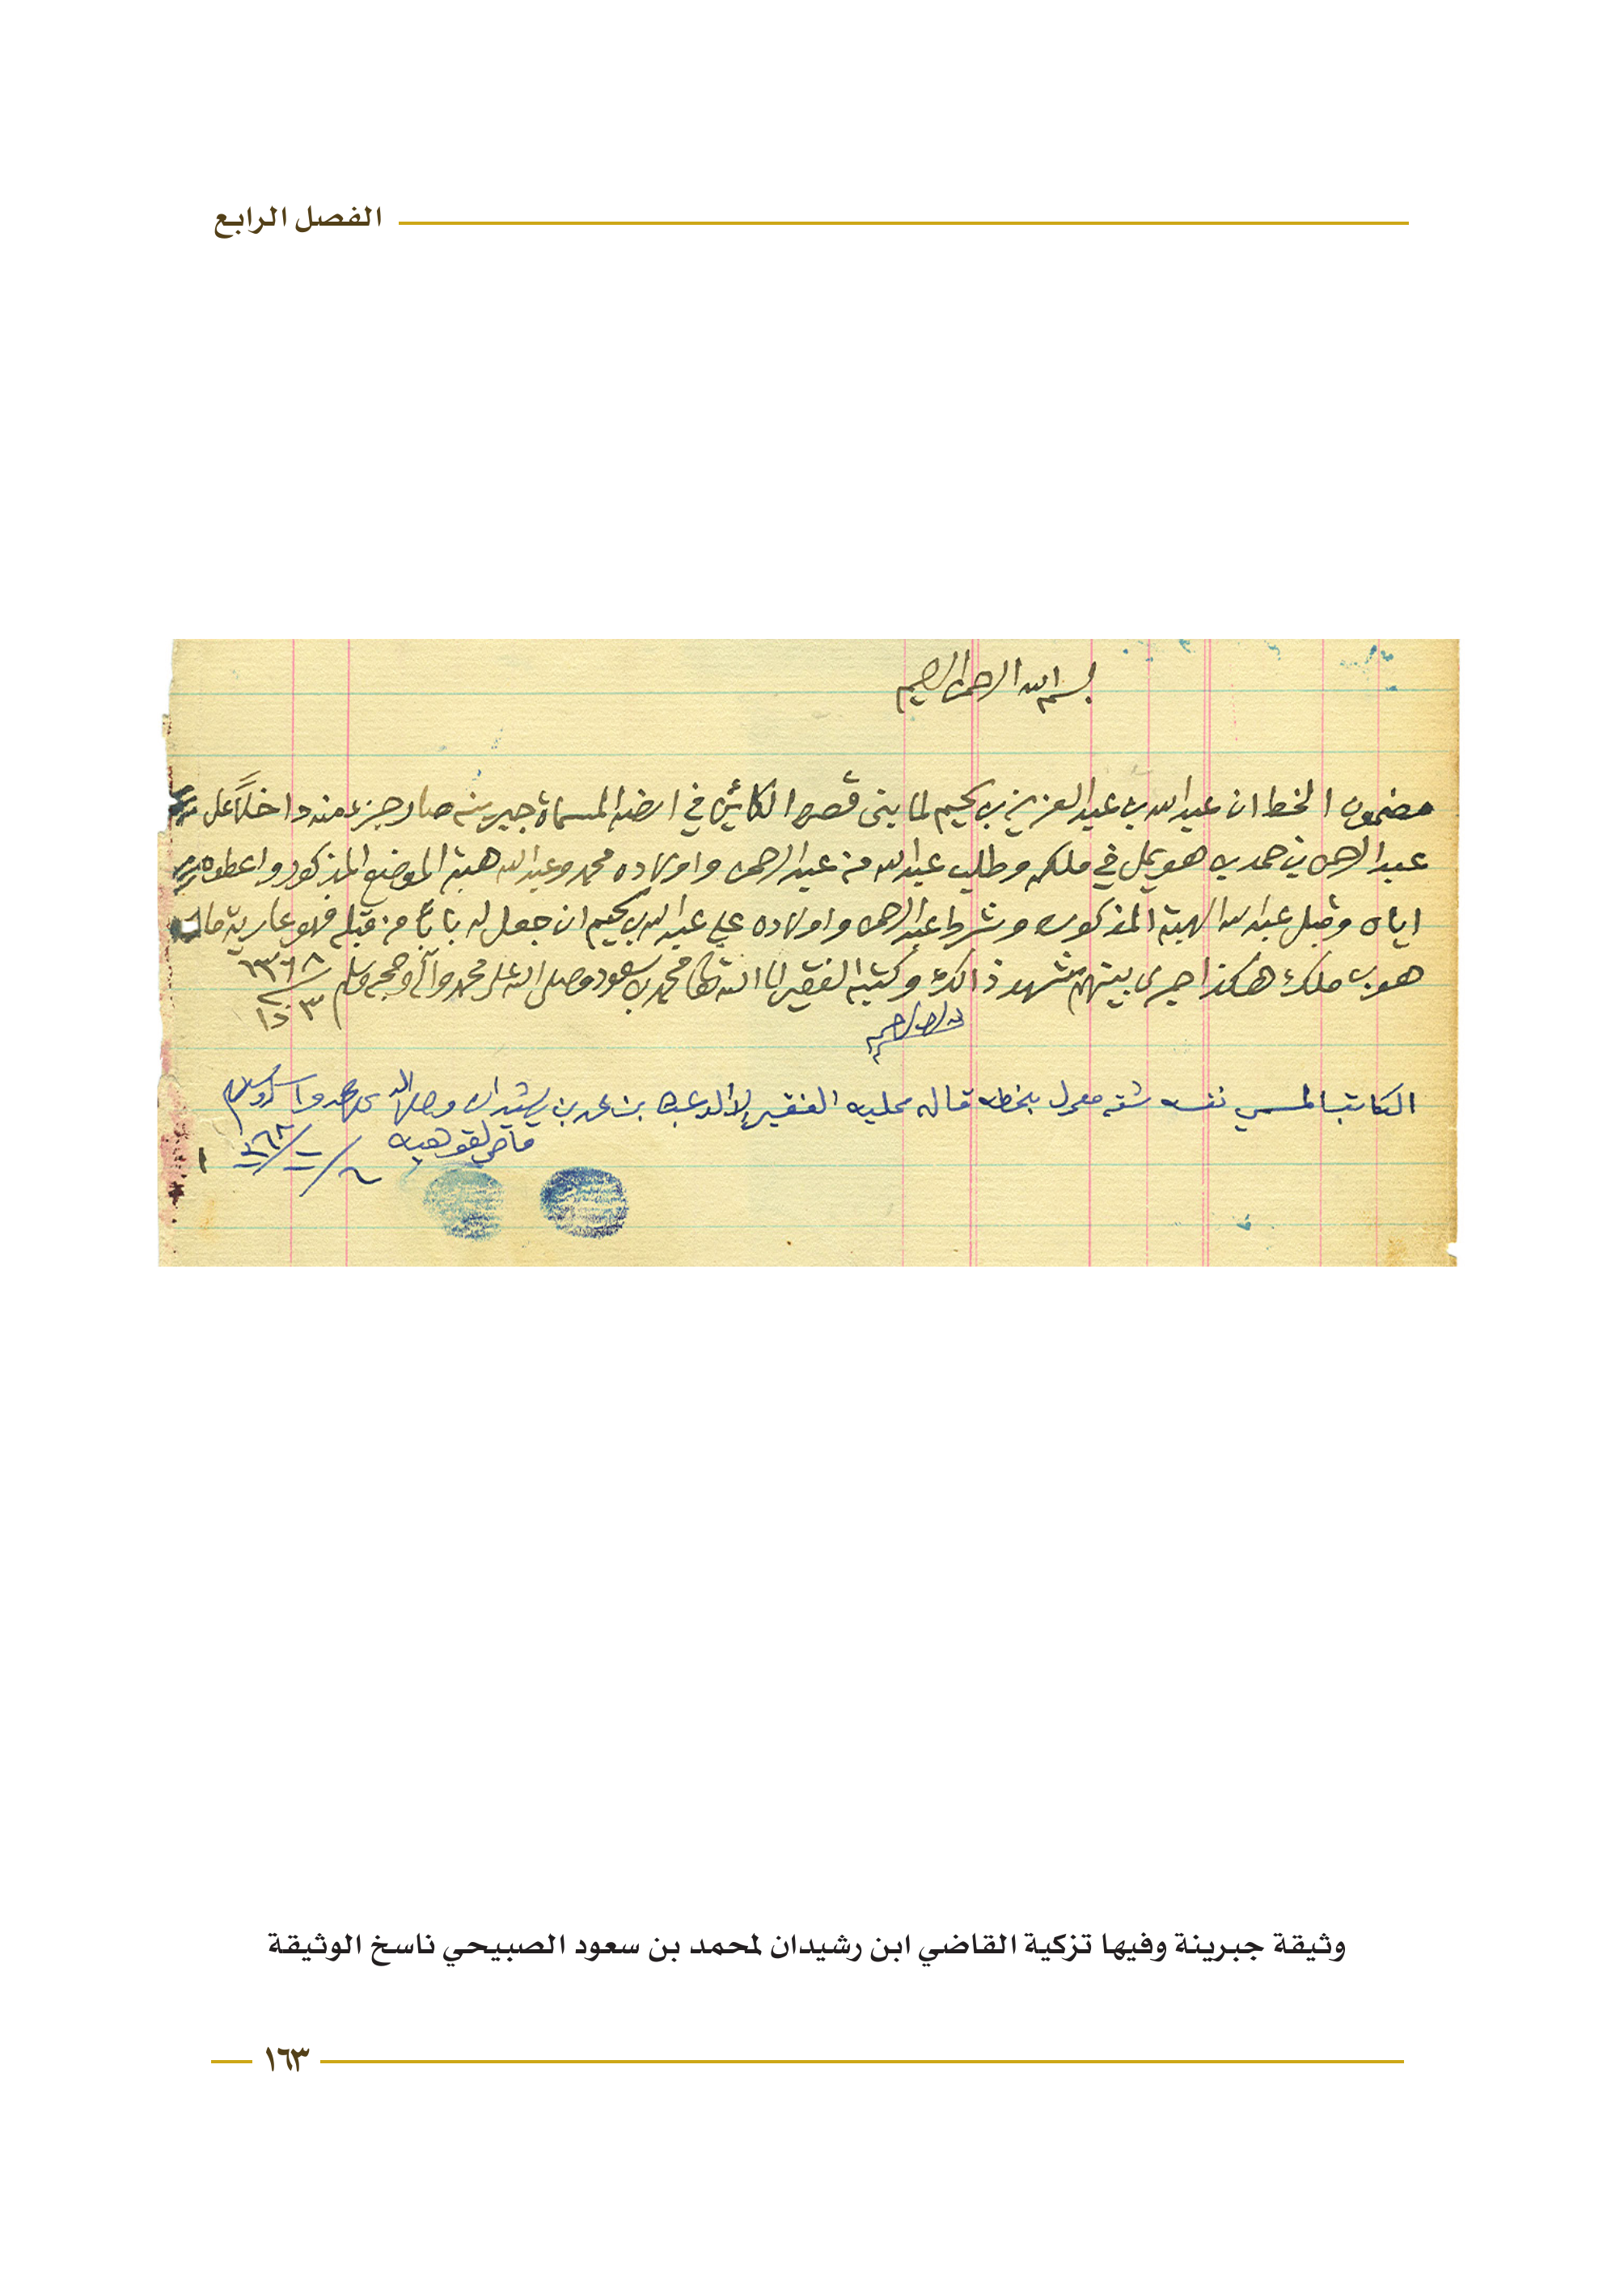 الفصل الرابع
بسم الله الرحمن الرحيم
مضمون الخطان عبدالله بن عبدالعزيز بن يحيم لما بنى قصره الكائن في ارضه المسماة جبرينه صار جزء منه داخلاً على
عبدالرحمن بن حمد بن هويمل في ملكه وطلب عبدالله من عبدالرحمن واولاده محمد وعبدالله هبة الموضع المذكور واعطوه
اياه وقبل عبدالله الهبة المذكوره وشرط عبدالرحمن واولاده على عبدالله بن يحيم ان جعل له باباً من قبله فهو عارية ما
هوب ملك هكذا جرى بينهم شهد ذالك وكتبه الفقير الى الله تعالى محمد بن سعود وصلى الله على محمد وآله وصحبه وسلم ١٣٦٨
١٥ ٣
بسم الله الرحمن الرحيم
الكاتب المسمي نفسه ثقه معمول بخطه قاله ممليه الفقير الى الله عبدالله بن محمد بن رشيدان وصلى الله على محمد وآله وسلم
قاضي القويعيه
وثيقة جبرينة وفيها تزكية القاضي ابن رشيدان لمحمد بن سعود الصبيحي ناسخ الوثيقة
١٦٣